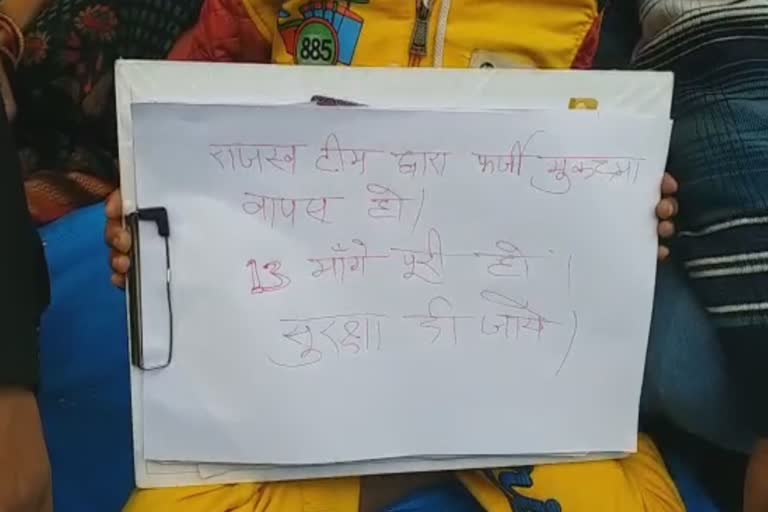 885
राजस्व टीम द्वारा फर्जी मुकदमा
वापस हो।
13 माँगे पूरी हो ।
सुरक्षा दी जाये।